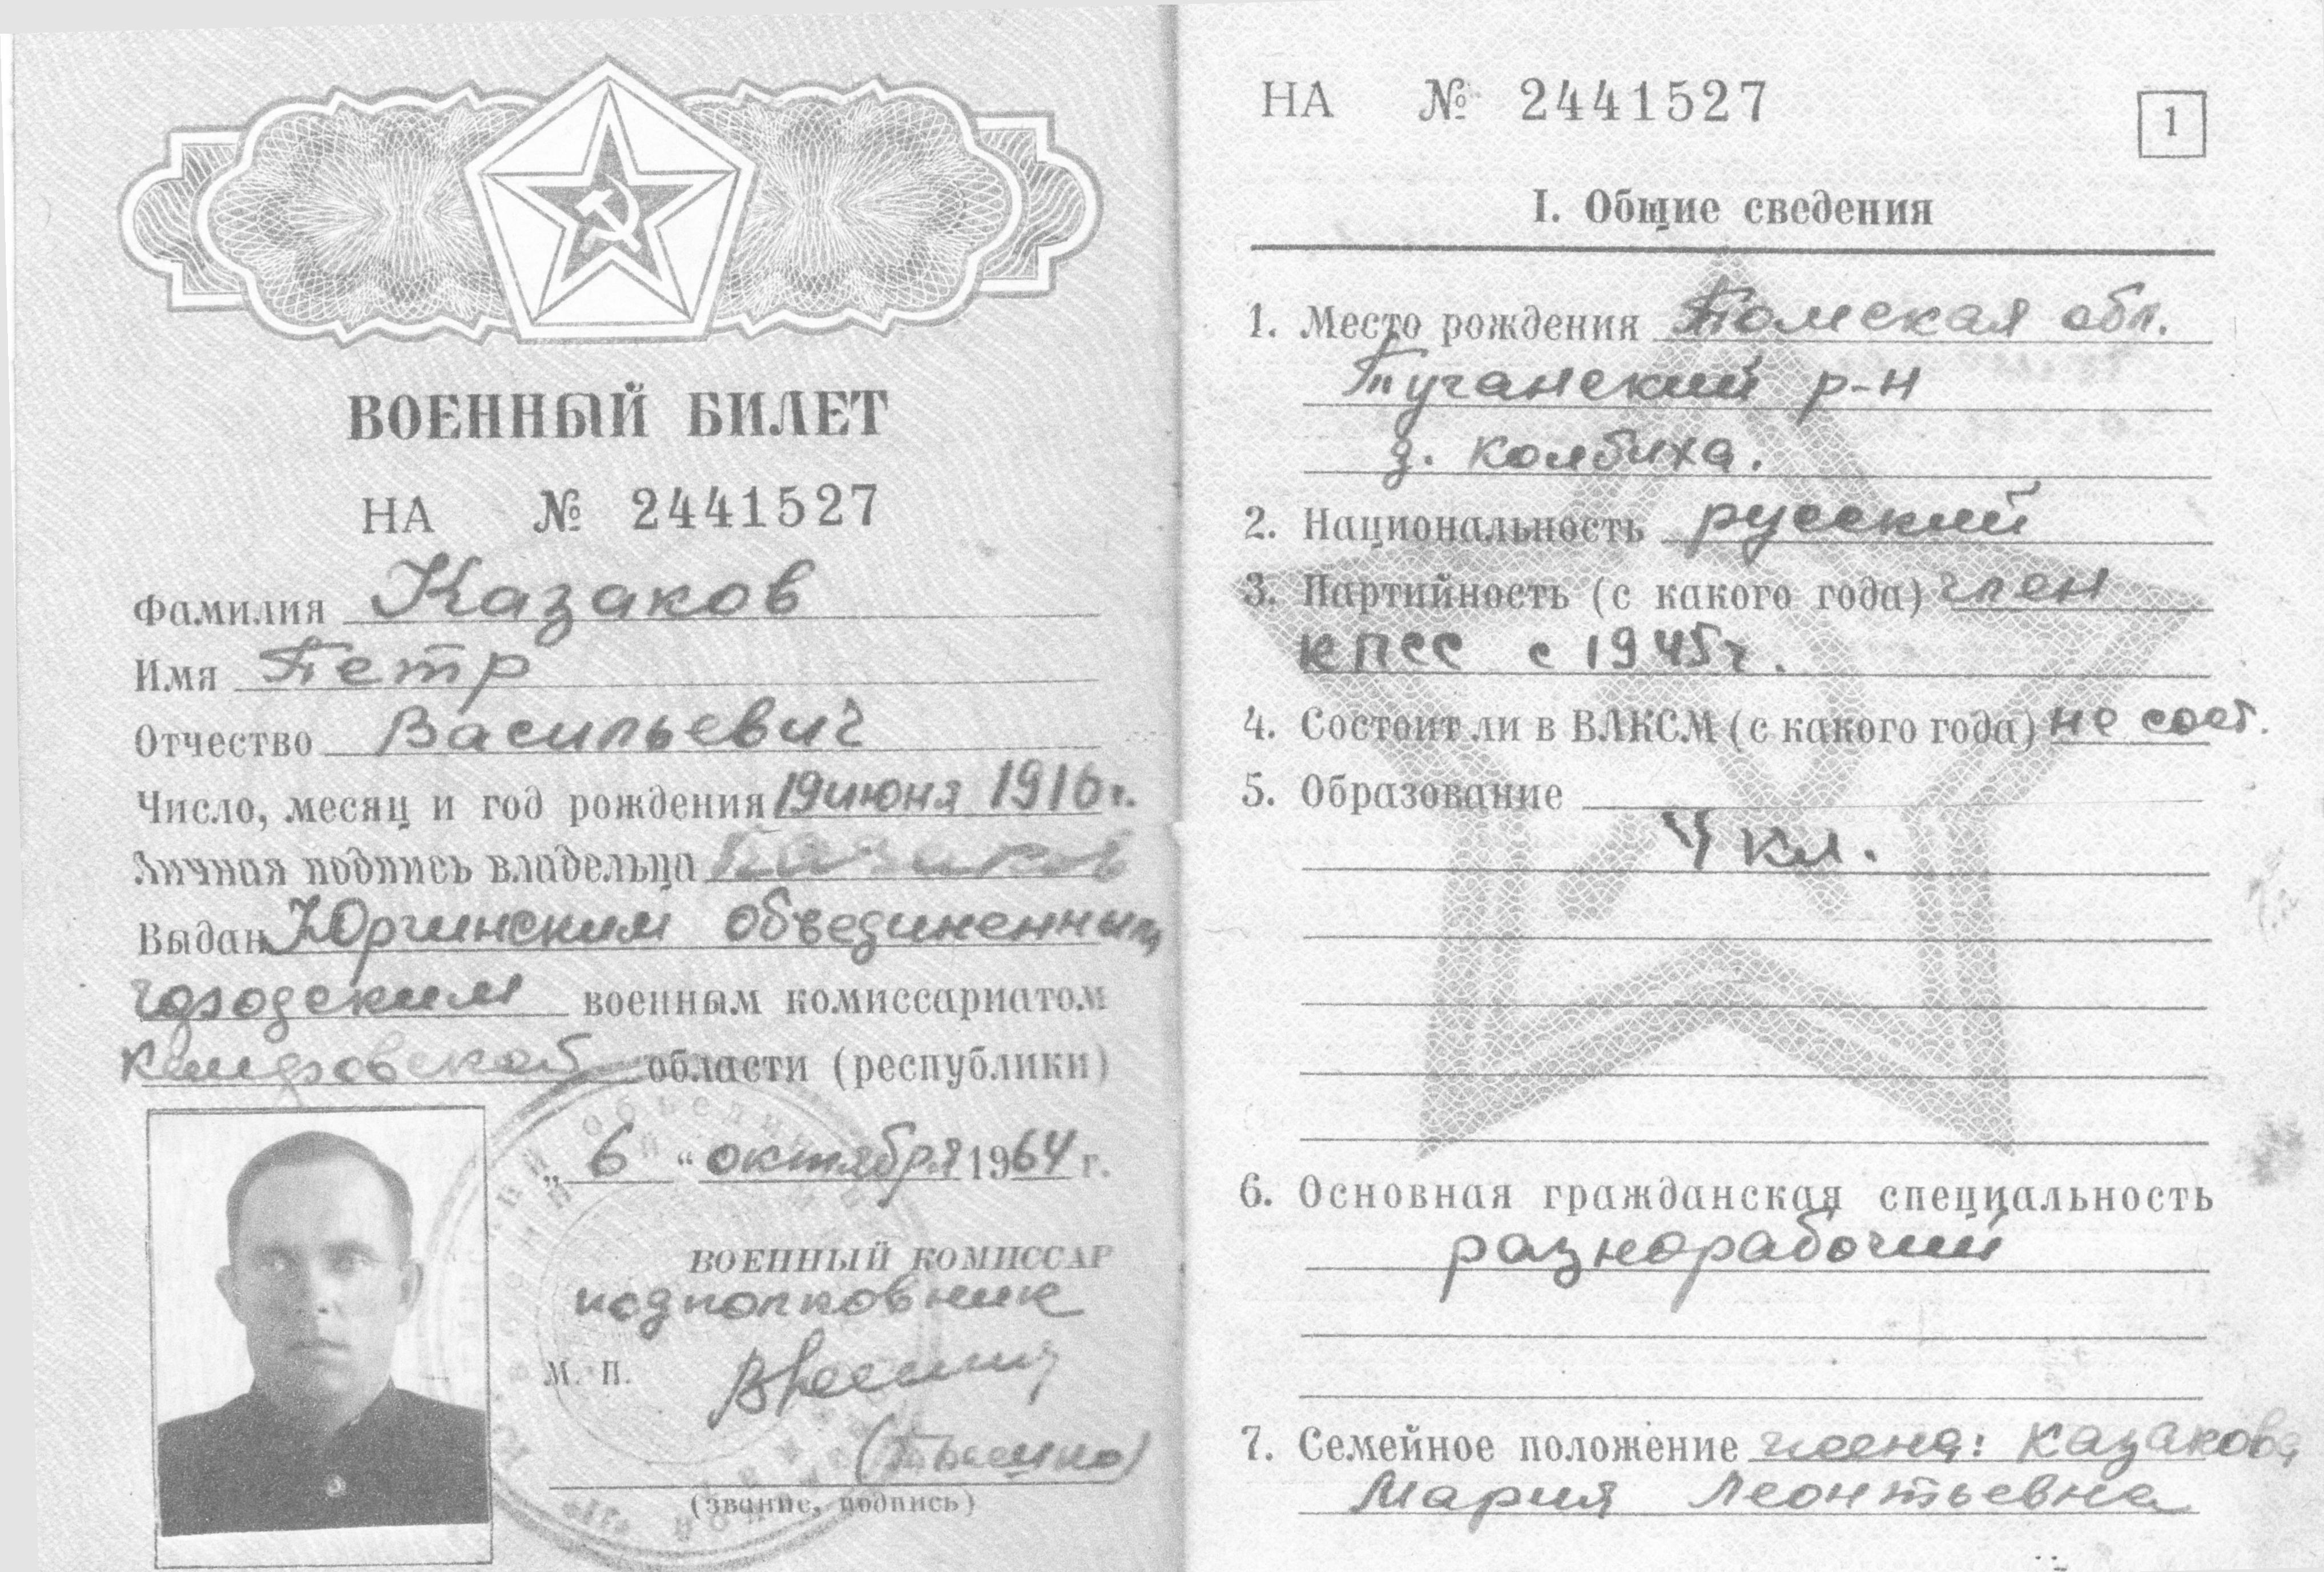 ВОЕННЫЙ БИЛЕТ
НА № 2441527
Фамилия Казаков
Имя Петр
Отчество Васильевич
Число, месяц и год рождения 19 июня 1916 г.
Личная подпись владельца Казаков
Выдан Юргинским объединенным
городским военным комиссариатом
Кемеровской области (республики)
„6“ октября 1964 г.
ВОЕННЫЙ КОМИССАР
подполковник
М. П.
(звание, подпись)
НА № 2441527
1
I. Общие сведения
1. Место рождения Томская обл.
Туганский р-н
д. Колбиха.
2. Национальность русский
3. Партийность (с какого года) член
КПСС с 1945 г.
4. Состоит ли в ВЛКСМ (с какого года) не сост.
5. Образование
4 кл.
6. Основная гражданская специальность
разнорабочий
7. Семейное положение жена: Казакова
Мария Леонтьевна